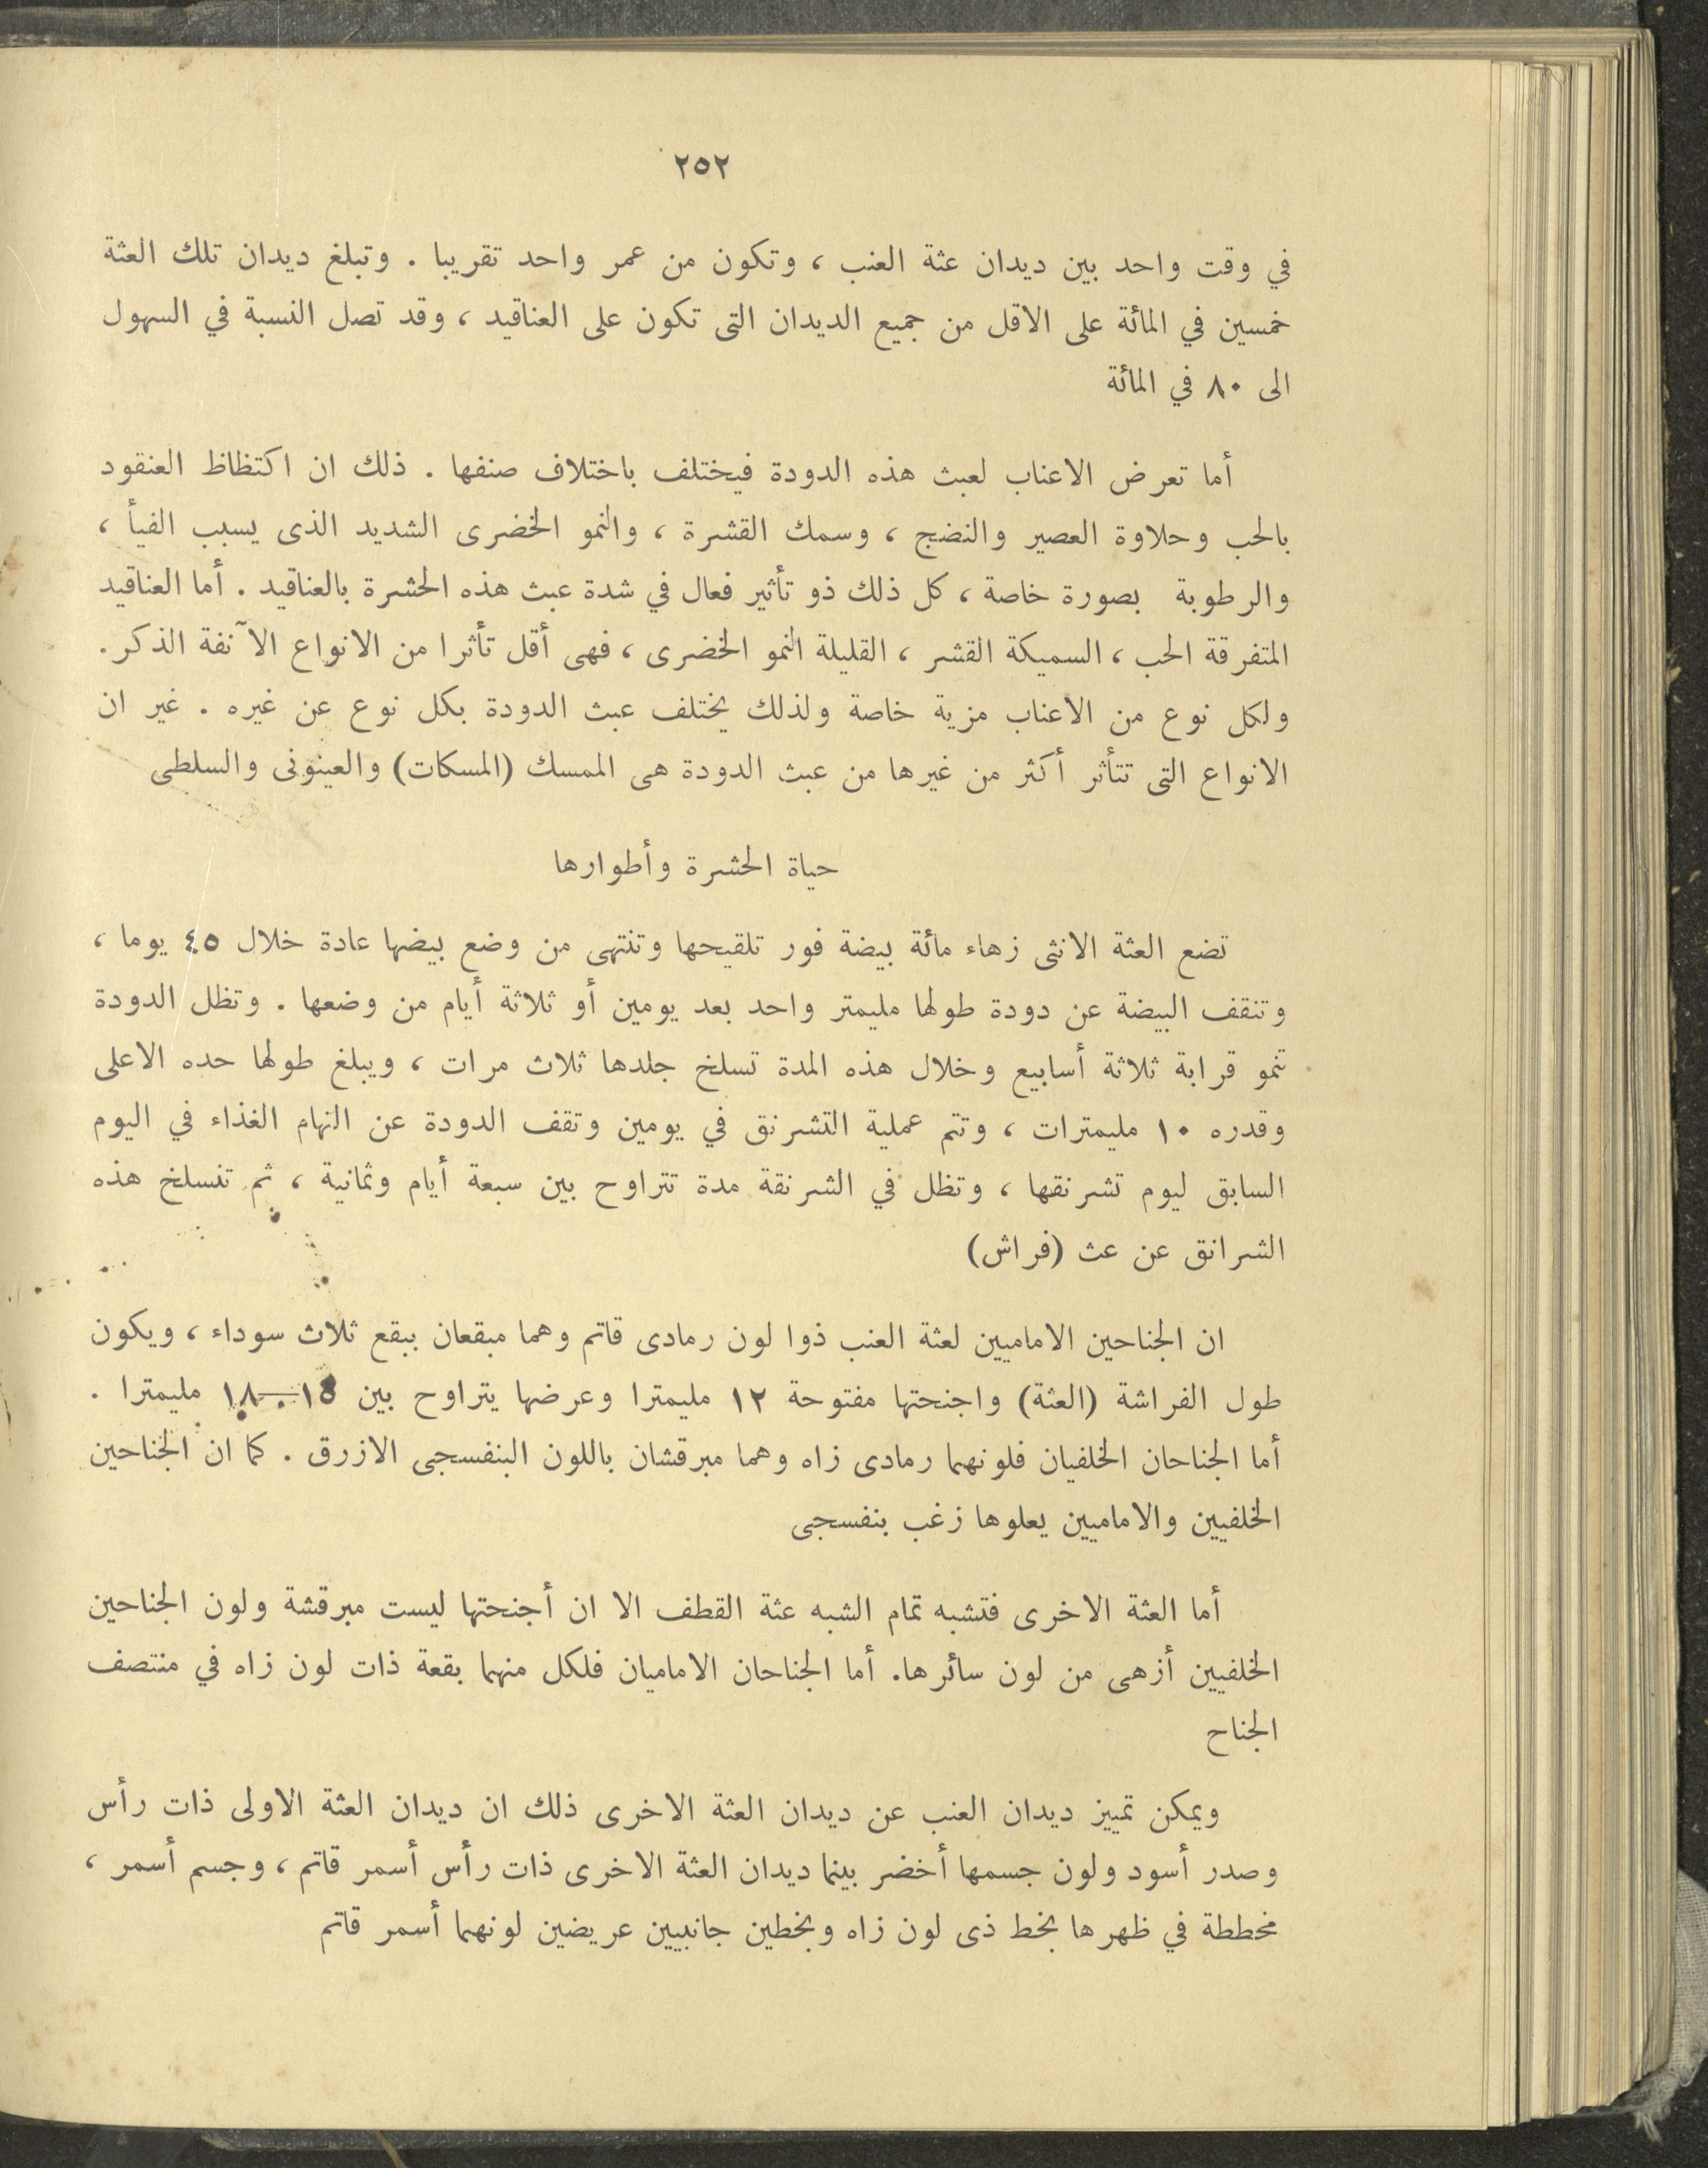 ٢٥٢
في وقت واحد بين ديدان عثة العنب ، وتكون من عمر واحد تقريبا . وتبلغ ديدان تلك العثة
خمسين في المائة على الاقل من جميع الديدان التى تكون على العناقيد ، وقد تصل النسبة في السهول
الى ٨٠ في المائة
أما تعرض الاعناب لعبث هذه الدودة فيختلف باختلاف صنفها . ذلك ان اكتظاظ العنقود
بالحب وحلاوة العصير والنضج ، وسمك القشرة ، والنمو الخضرى الشديد الذى يسبب الفيأ ،
والرطوبة بصورة خاصة ، كل ذلك ذو تأثير فعال في شدة عبث هذه الحشرة بالعناقيد . أما العناقيد
المتفرقة الحب ، السميكة القشر ، القليلة النمو الخضرى ، فهى أقل تأثرا من الانواع الآنفة الذكر .
ولكل نوع من الاعناب مزية خاصة ولذلك يختلف عبث الدودة بكل نوع عن غيره . غير ان
الانواع التى تتأثر أكثر من غيرها من عبث الدودة هى الممسك (المسكات) والعينونى والسلطى
حياة الحشرة وأطوارها
تضع العثة الانثى زهاء مائة بيضة فور تلقيحها وتنتهى من وضع بيضها عادة خلال ٤٥ يوما ،
وتنقف البيضة عن دودة طولها مليمتر واحد بعد يومين أو ثلاثة أيام من وضعها . وتظل الدودة
تنمو قرابة ثلاثة أسابيع وخلال هذه المدة تسلخ جلدها ثلاث مرات ، ويبلغ طولها حده الاعلى
وقدره ١٠ مليمترات ، وتتم عملية التشرنق في يومين وتقف الدودة عن التهام الغذاء في اليوم
السابق ليوم تشرنقها ، وتظل في الشرنقة مدة تتراوح بين سبعة أيام وثمانية ، ثم تنسلخ هذه
الشرانق عن عث (فراش)
ان الجناحين الاماميين لعثة العنب ذوا لون رمادى قاتم وهما مبقعان ببقع ثلاث سوداء ، ويكون
طول الفراشة (العثة) واجنحتها مفتوحة ١٢ مليمترا وعرضها يتراوح بين ١٨ مليمترا .
أما الجناحان الخلفيان فلونهما رمادى زاه وهما مبرقشان باللون البنفسجى الازرق . كما ان الجناحين
الخلفيين والاماميين يعلوها زغب بنفسجى
أما العثة الاخرى فتشبه تمام الشبه عثة القطف الا ان أجنحتها ليست مبرقشة ولون الجناحين
الخلفيين أزهى من لون سائرها. أما الجناحان الاماميان فلكل منهما بقعة ذات لون زاه في منتصف
الجناح
ويمكن تمييز ديدان العنب عن ديدان العثة الاخرى ذلك ان ديدان العثة الاولى ذات رأس
وصدر أسود ولون جسمها أخضر بينما ديدان العثة الاخرى ذات رأس أسمر قاتم ، وجسم أسمر ،
مخططة في ظهرها بخط ذى لون زاه وبخطين جانبيين عريضين لونهما أسمر قاتم